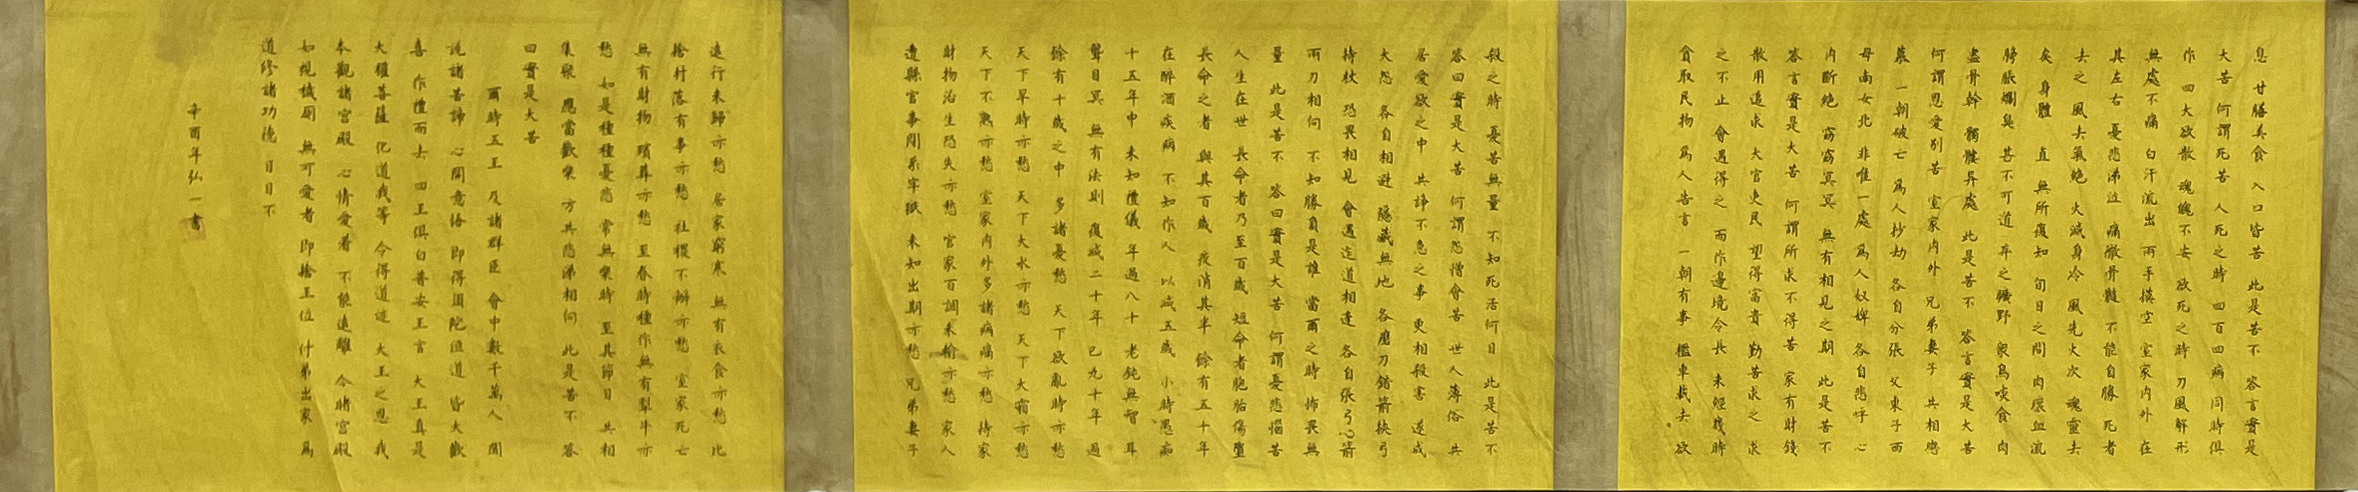 息 甘膳美食 入口皆苦 此是苦不 答言實是
大苦 何謂死苦 人死之時 四百四病 同時俱
作 四大欲散 魂魄不安 欲死之時 刀風解形
無處不痛 白汗流出 兩手摸空 室家內外 在
其左右 憂悲涕泣 痛徹骨髓 不能自勝 死者
去之 風去氣絶 火滅身冷 風先火次 魂靈去
矣 身體直 無所復知 旬日之間 肉壞血流
膀脹爛臭 甚不可道 弃之曠野 衆鳥啖食 肉
盡骨幹 髑髏异處 此是苦不 答言實是大苦
何謂恩愛別苦 室家內外 兄弟妻子 共相戀
慕 一朝破亡 爲人抄劫 各自分張 父東子西
母南女北 非唯一處 爲人奴婢 各自悲呼 心
內斷絶 窈窈冥冥 無有相見之期 此是苦不
答言實是大苦 何謂所求不得苦 家有財錢
散用追求 大官吏民 望得富貴 勤苦求之 求
之不止 會遇得之 而作邊境令長 未經幾時
貪取民物 爲人告言 一朝有事 檻車載去 欲
殺之時 憂苦無量 不知死活何日 此是苦不
答曰實是大苦 何謂怨憎會苦 世人薄俗 共
居愛欲之中 共諍不急之事 更相殺害 遂成
大怨 各自相避 隱藏無地 各磨刀錯箭挾弓
持杖 恐畏相見 會遇迮道相逢 各自張弓心箭
兩刀相向 不知勝負是誰 當爾之時 怖畏無
量 此是苦不 答曰實是大苦 何謂憂悲惱苦
人生在世 長命者乃至百歲 短命者胞胎傷墮
長命之者 與其百歲 夜消其半 餘有五十年
在醉酒疾病 不知作人 以減五歲 小時愚痴
十五年中 未知禮儀 年過八十 老鈍無智 耳
聾目冥 無有法則 復減二十年 已九十年 過
餘有十歲之中 多諸憂愁 天下欲亂時亦愁
天下旱時亦愁 天下大水亦愁 天下大霜亦愁
天下不熟亦愁 室家內外多諸病痛亦愁 持家
財物治生恐失亦愁 官家百調未輸亦愁 家人
遭縣官事閉系牢獄 未知出期亦愁 兄弟妻子
遠行未歸亦愁 居家窮寒 無有衣食亦愁 比
舍村落有事亦愁 社稷不辦亦愁 室家死亡
無有財物 殯葬亦愁 至春時種作無有犁牛亦
愁 如是種種憂悲 常無樂時 至其節日 共相
集聚 應當歡樂 方共悲涕相向 此是苦不 答
曰實是大苦
爾時五王 及諸群臣 會中數千萬人 聞
說諸苦諦 心開意悟 即得須陀洹道 皆大歡
喜 作禮而去 四王俱白普安王言 大王真是
大權菩薩 化道我等 今得道迹 大王之恩 我
本觀諸宮殿 心情愛着 不能遠離 今睹宮殿
如視穢厠 無可愛者 即捨王位 付弟出家 爲
道修諸功德 日日不
辛酉年弘一書